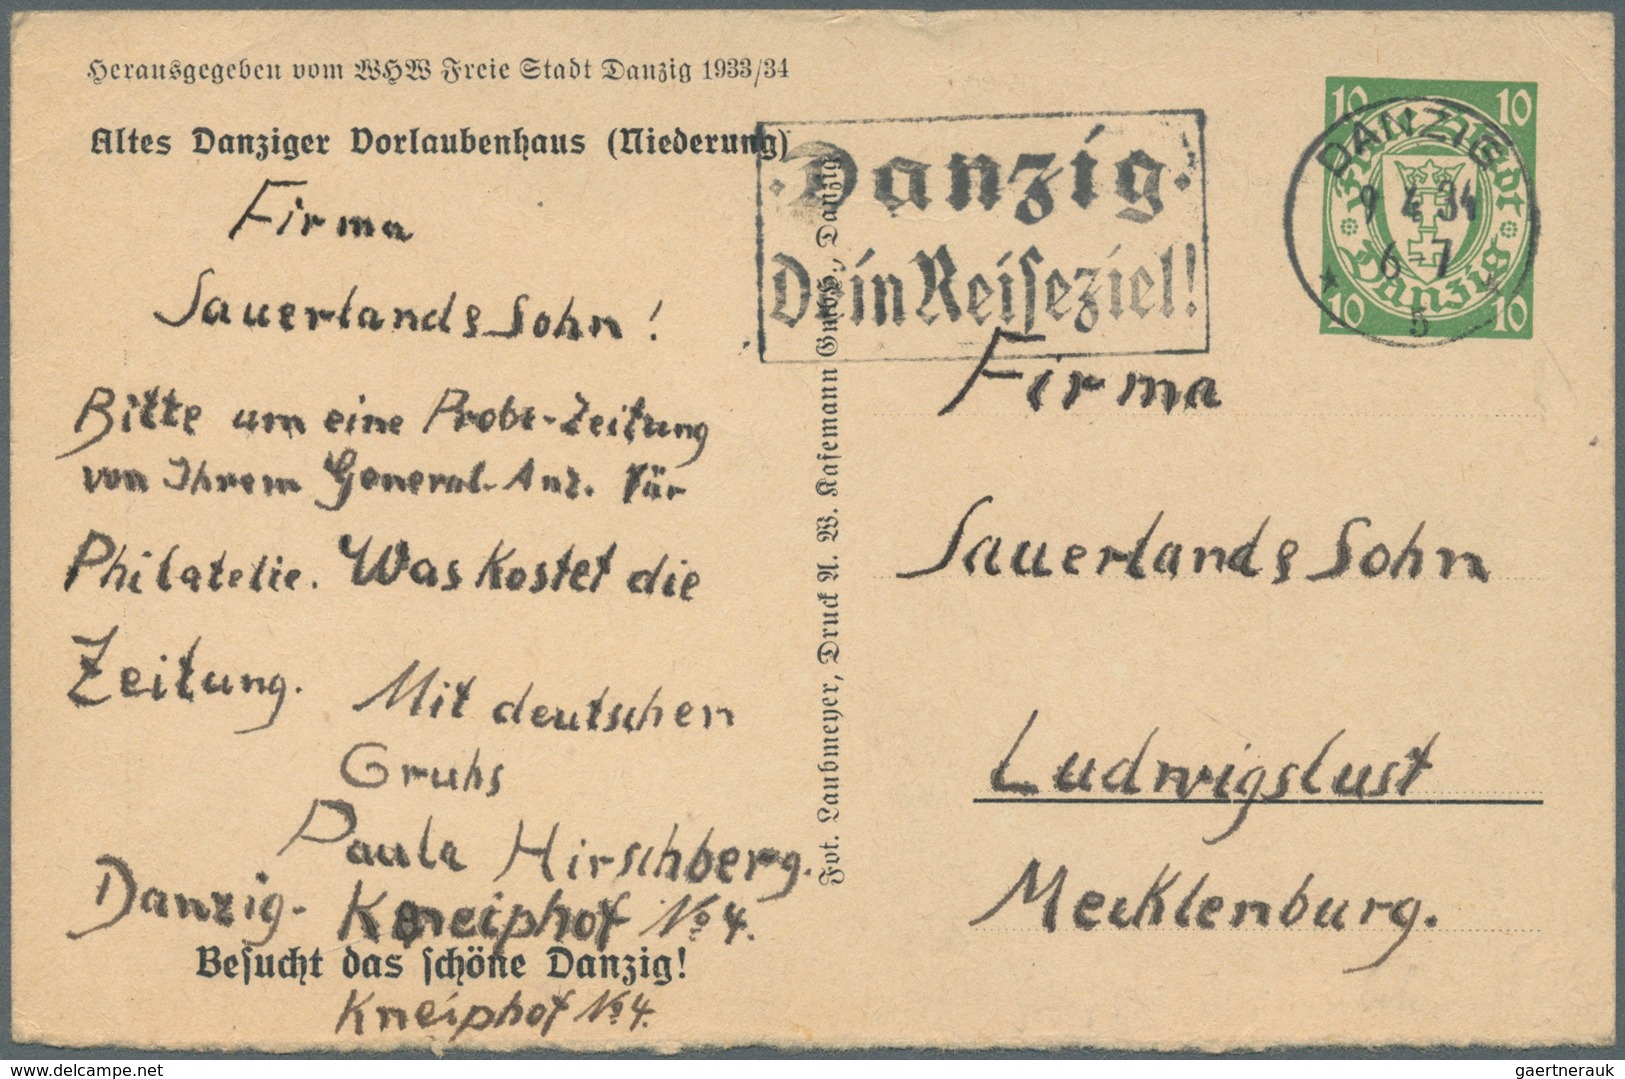 Herausgegeben vom WHW Freie Stadt Danzig 1933/34
Altes Danziger Vorlaubenhaus (Niederung)
Firma
Sauerlands Sohn!
Bitte um eine Probe-Zeitung
von Ihrem General-Anz. für
Philatelie. Was kostet die
Zeitung. Mit deutschen
Gruhs
Paula Hirschberg.
Danzig- Kneiphof No 4.
Besucht das schöne Danzig!
Kneiphof No 4.
Fot. Laubmeyer, Druck A. W. Kafemann GmbH., Danzig
Danzig
Dein Reiseziel!
10 10
Freie Stadt
Danzig
10 10
DANZIG
9 4 34
6-7
5
Firma
Sauerlands Sohn
Ludwigslust
Mecklenburg.
www.delcampe.net
gaertnerauk